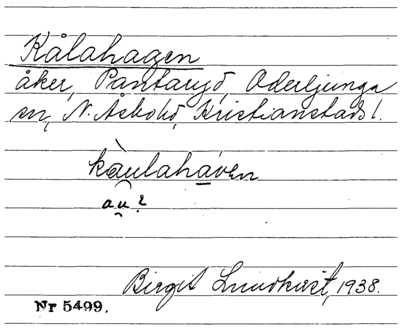 Kålahagen
åker, Påntaryd, Oderljunga
sn, N. Åsbohd, Kristianstads l.
kàulahà̱ven
au?
Birgit Lundkvist, 1938.
Nr 5499.